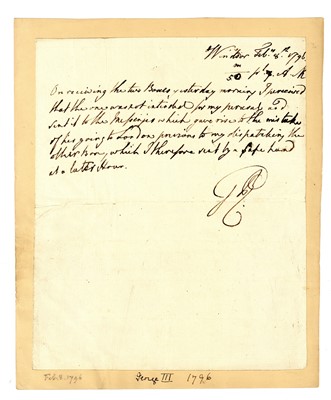 Windsor Feb.y 8.th 1796
m
50 p.t 7 A.M
On receiving the two Boxes yesterday morning I perceived
that the one was not intended for my perusal and
sent it to the Messenger which gave rise to the mistake
of his going to London previous to my dispatching the
other box, which I therefore sent by a safe hand
at a later Hour.
GR
Feb. 8. 1796
George III 1796